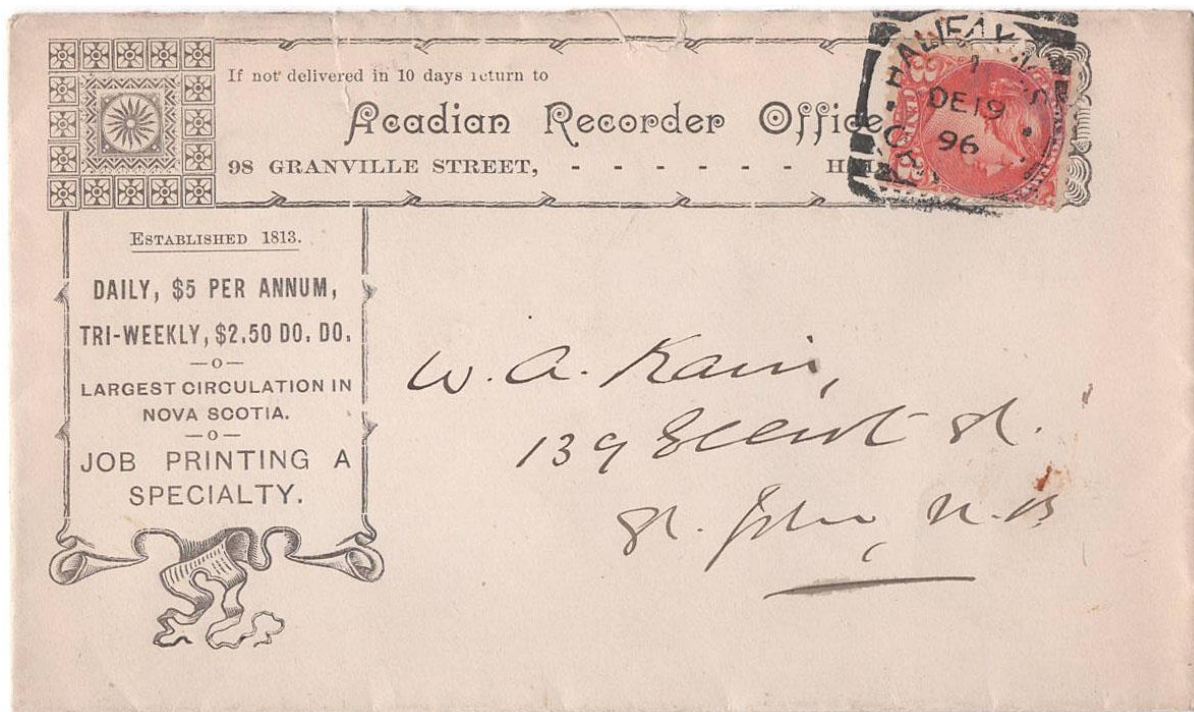 If not delivered in 10 days return to
Acadian Recorder Office
98 GRANVILLE STREET, - - - - - -
HALIFAX
1
DE 19
96
CAN
ESTABLISHED 1813.
DAILY, $5 PER ANNUM,
TRI-WEEKLY, $2.50 DO. DO.
—o—
LARGEST CIRCULATION IN
NOVA SCOTIA.
—o—
JOB PRINTING A
SPECIALTY.
W. A. Kain,
139 Elliot St.
St. John, N.B